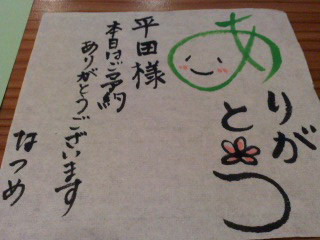 ありがとう
平田様
本日はご予約
ありがとうございます
なつめ